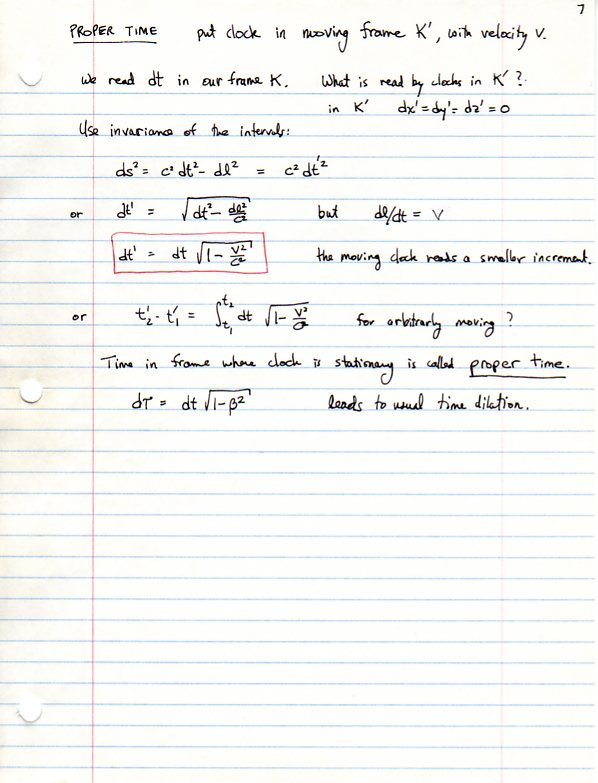 7
PROPER TIME put clock in moving frame K', with velocity V.
We read dt in our frame K. What is read by clocks in K'?
in K' dx' = dy' = dz' = 0
Use invariance of the intervals:
ds² = c² dt² - dl² = c² dt'²
or dt' = √(dt² - dl²/c²) but dl/dt = V
dt' = dt √(1 - V²/c²) the moving clock reads a smaller increment.
or t₂' - t₁' = ∫_{t₁}^{t₂} dt √(1 - V²/c²) for arbitrarly moving ?
Time in frame where clock is stationary is called proper time.
dτ = dt √(1-β²) leads to usual time dilation.